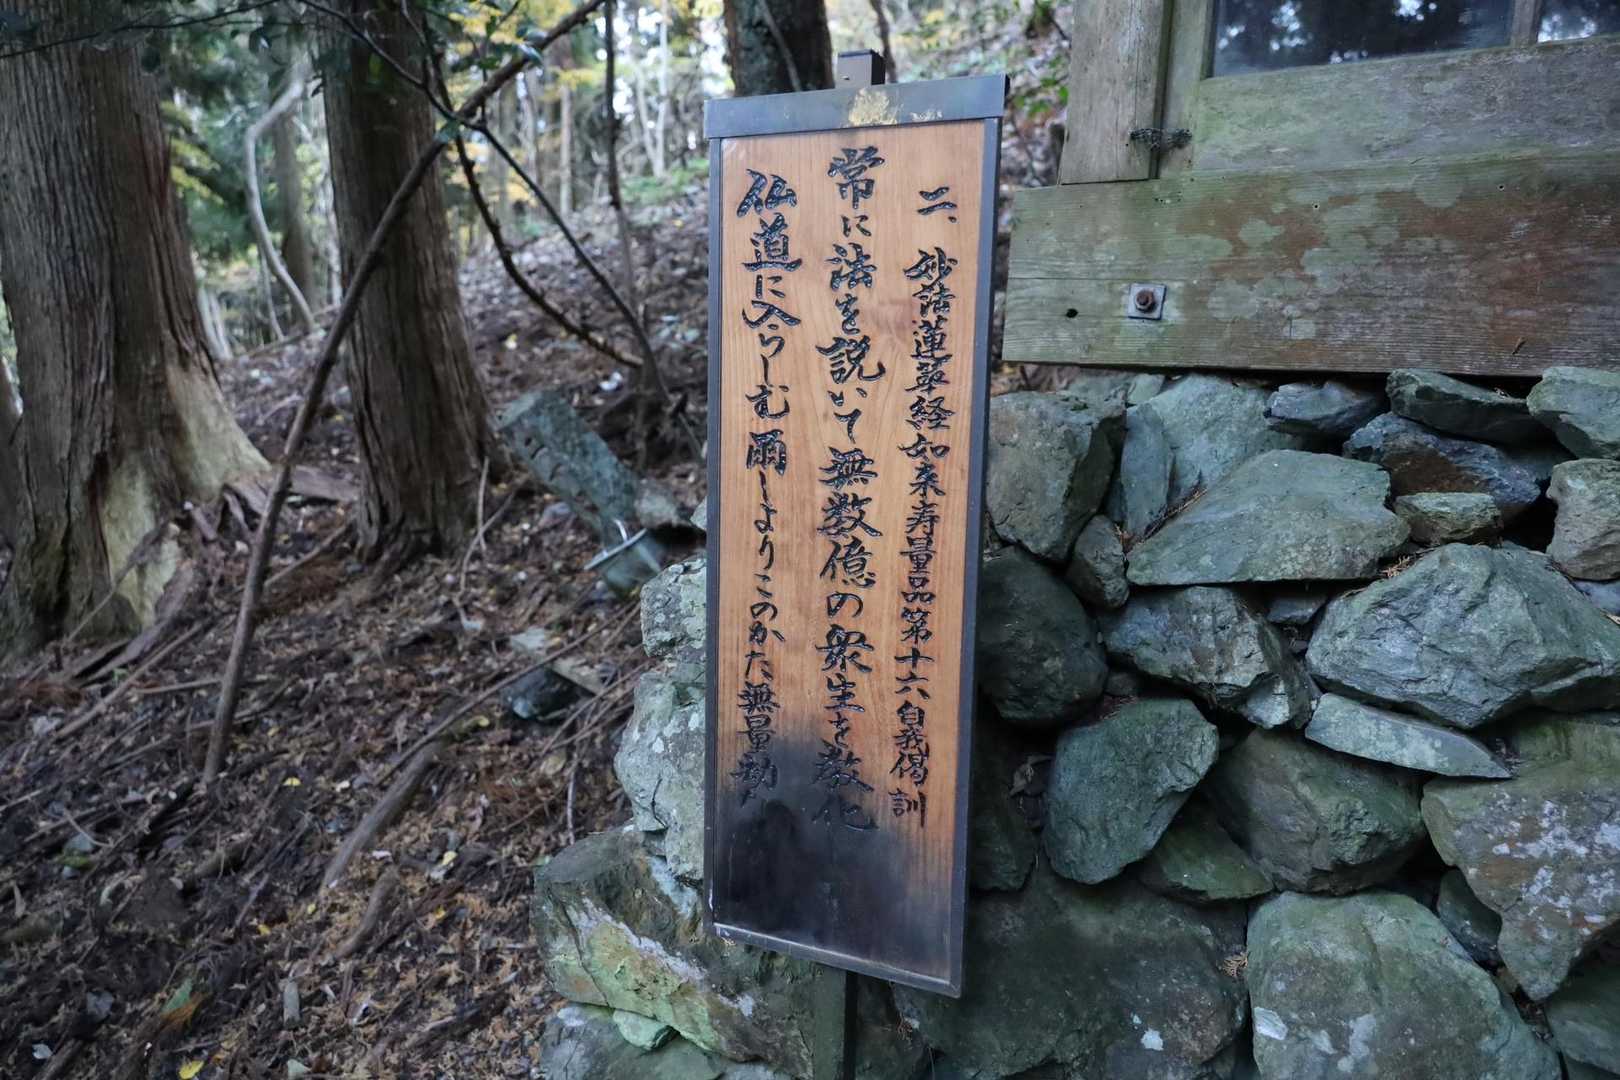 二、妙法蓮華経如来寿量品第十六自我偈訓
常に法を説いて無数億の衆生を教化
仏道に入らしむ爾しよりこのかた無量劫